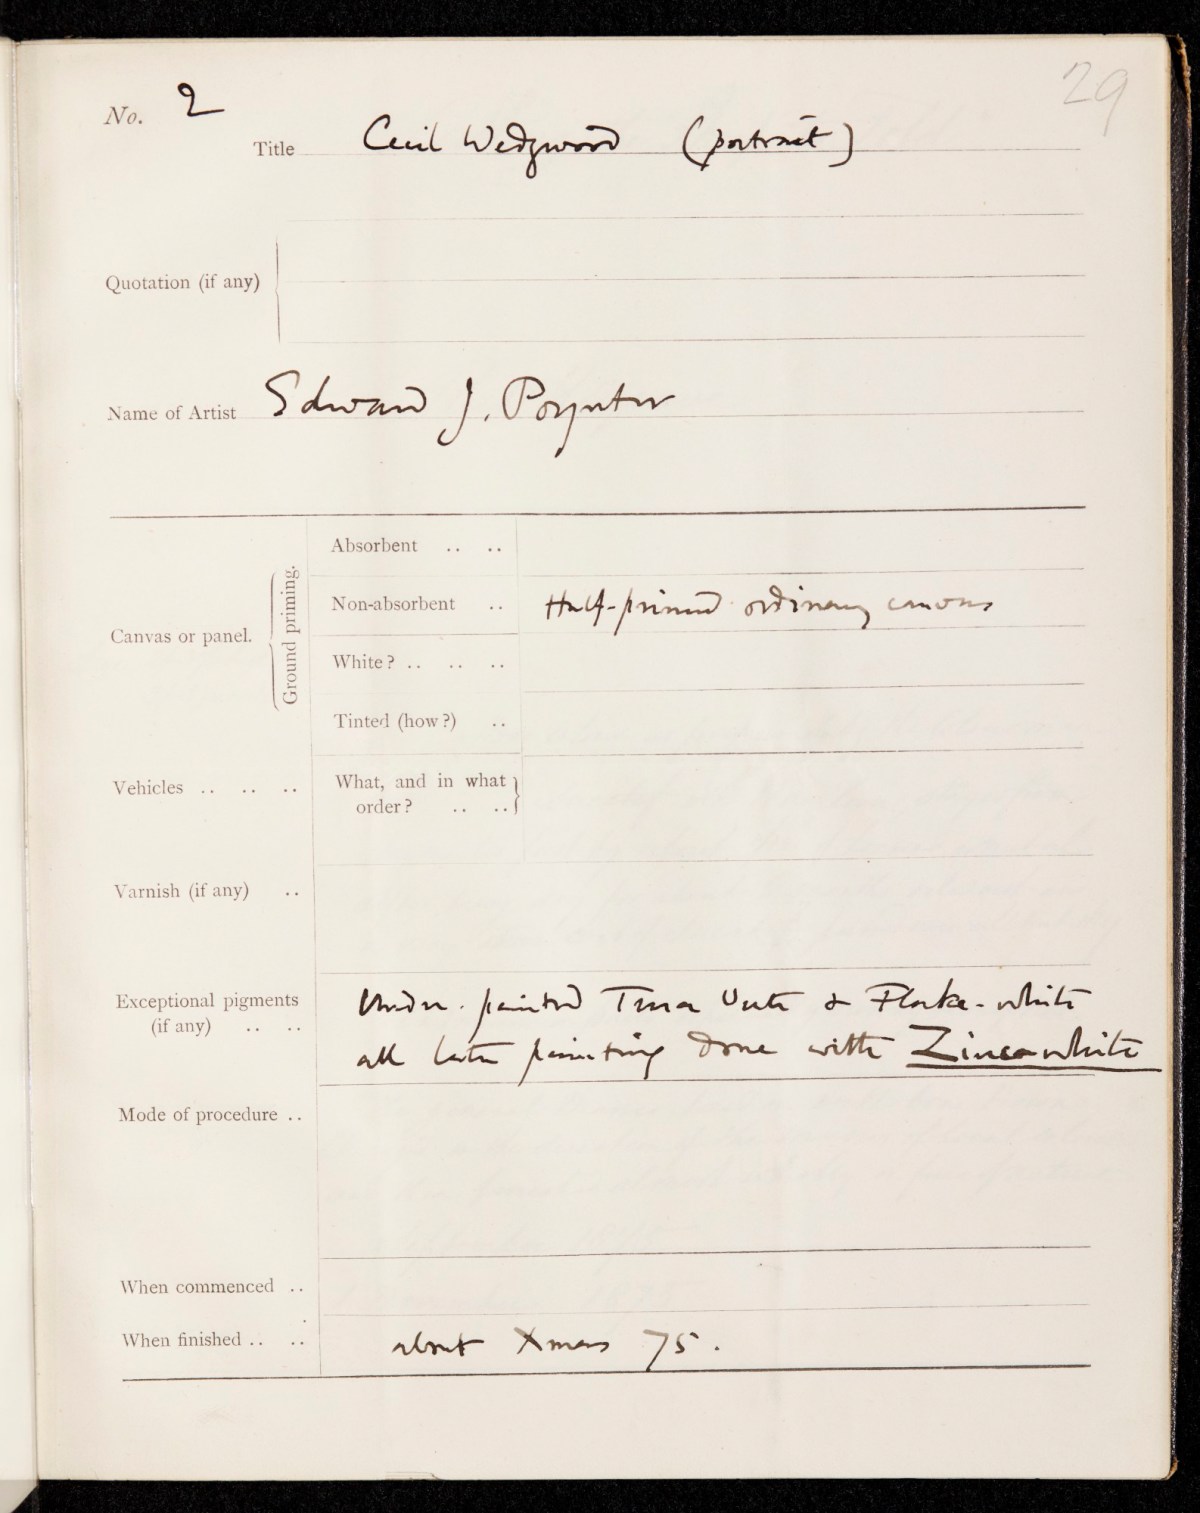 29
No. 2
Title Cecil Wedgwood (portrait)
Quotation (if any)
Name of Artist Edward J. Poynter
Absorbent .. ..
Non-absorbent .. Half-primed ordinary canvas
Canvas or panel. Ground priming.
White? .. .. ..
Tinted (how?) ..
Vehicles .. .. .. What, and in what
order? .. ..
Varnish (if any) ..
Exceptional pigments Under-painted Terra Verte & Flake-white
(if any) .. .. all later painting done with Zinc-white
Mode of procedure ..
When commenced ..
When finished .. .. about Xmas 75.